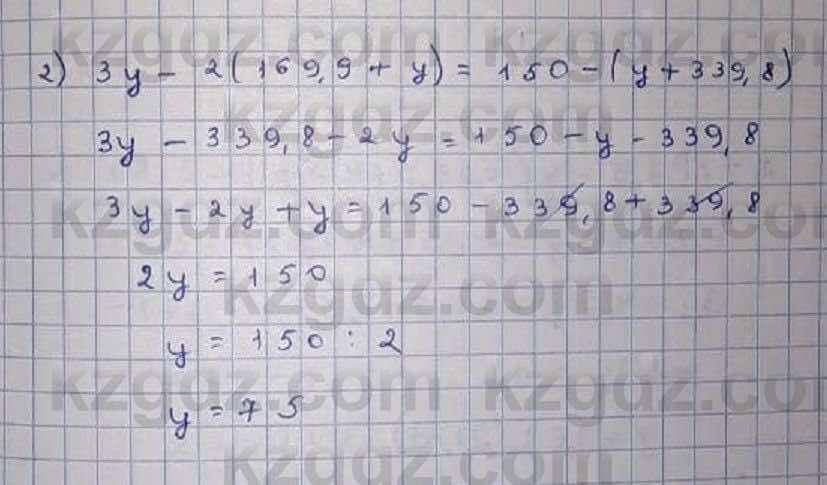 kzgdz.com kzgdz.com
2) 3y - 2(169,9 + y) = 150 - (y + 339,8)
kzgdz.com
3y - 339,8 - 2y = 150 - y - 339,8
3y - 2y + y = 150 - 339,8 + 339,8
kzgdz.com kzgdz.com
2y = 150
kzgdz.com
y = 150 : 2
kzgdz.com kzgdz.com
y = 75
kzgdz.com